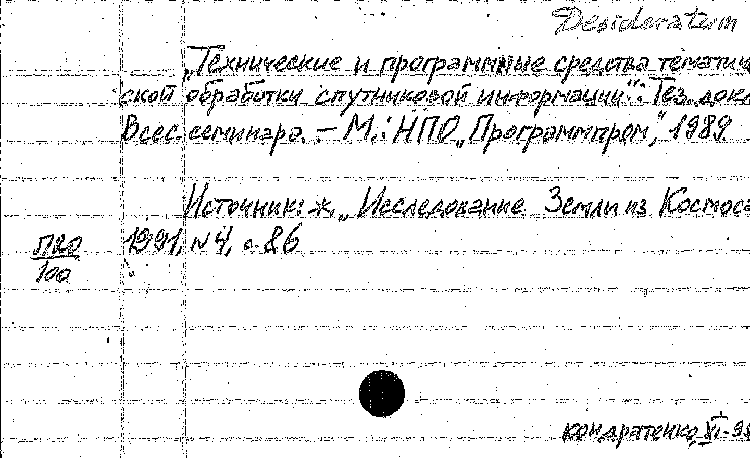 Desideratum
„Технические и программные средства тематиче
ской обработки спутниковой информации": Тез. докл
Всес. семинара. – М.: НПО „Программпром", 1989
Источник: ж. „Исследование Земли из Космоса
1991, N4, с. 86
П20
100
Кондратенко, XI-98